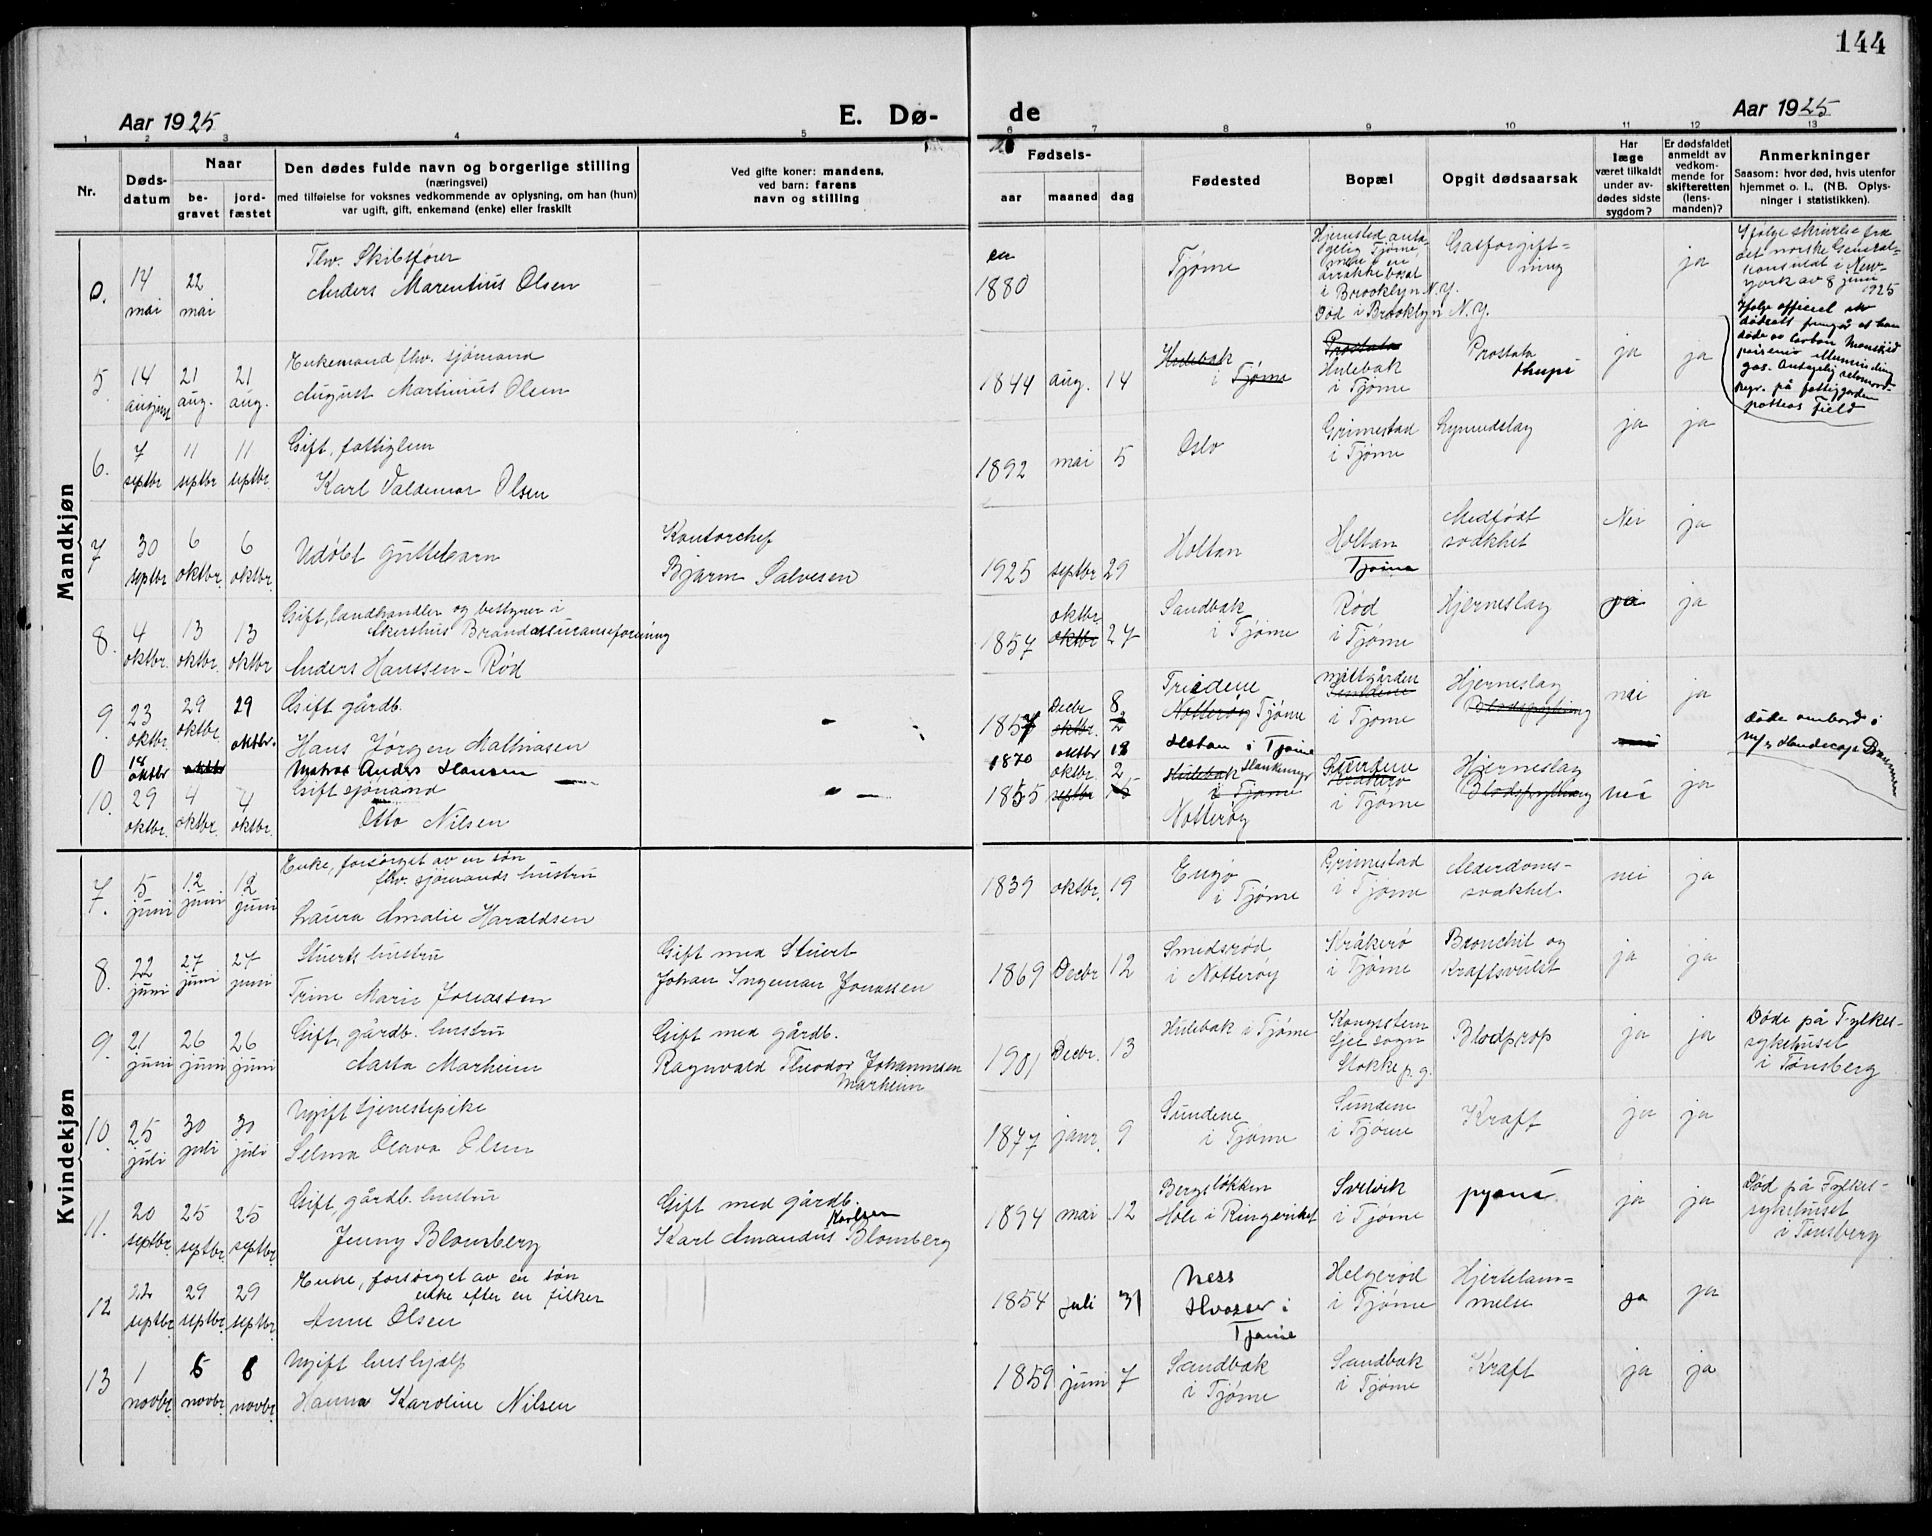 144
Aar 1925
E. Dø-
de
Aar 1925
1 2 3 4 5 6 7 8 9 10 11 12 13
Nr.
Døds-
datum
Naar
be-
gravet
jord-
fæstet
Den dødes fulde navn og borgerlige stilling
(næringsvei)
med tilføielse for voksnes vedkommende av oplysning, om han (hun)
var ugift, gift, enkemand (enke) eller fraskilt
Ved gifte koner: mandens,
ved barn: farens
navn og stilling
Fødsels-
aar
maaned
dag
Fødested
Bopæl
Opgit dødsaarsak
Har
læge
været tilkaldt
under av-
dødes sidste
sygdom?
Er dødsfaldet
anmeldt av
vedkom-
mende for
skifteretten
(lens-
manden)?
Anmerkninger
Saasom: hvor død, hvis utenfor
hjemmet o. l., (NB. Oplys-
ninger i statistikken).
Mandkjøn
0.
14
mai
22
mai
Fhv. Skibsfører
Anders Marentius Olsen
ca
1880
Tjøme
Hjemsted anta-
gelig Tjøme
men en
årrække bosat
i Brooklyn N.Y.
Død i Brooklyn N.Y.
Gasforgift-
ning
ja
Ifølge skrivelse fra
det norske General-
konsulat i New-
york av 8 juni
1925
5.
14
august
21
aug.
21
aug.
Enkemand fhv. sjömand
August Martinius Olsen
1844 aug. 14
Hulebak
i Tjøme
Prostata
Hulebak
i Tjøme
Prostata
ja
ja
Ifølge officiel
døde av Carbon Monoxid
gas. Antagelig selvmord.
på fattiggården
potters Field
6.
7
septbr
11
septbr
11
septbr.
Gift, fattiglem
Karl Valdemar Olsen
1892 mai 5
Oslo
Grimestad
i Tjøme
Lynnedslag
ja
ja
7
30
septbr
6
oktbr.
6
oktbr.
Udøbt guttebarn
Kontorchef
Bjarne Salvesen
1925 septbr 29
Holtan
Holtan
Tjøme
Medfødt
svakhet
Nei
ja
8.
4
oktbr.
13
oktbr.
13
oktbr
Gift, landhandler og bestyrer i
Akershus Brandassuranseforening
Anders Hanssen-Rød
1857
oktbr
oktbr. 27
Sandbæk
i Tjøme
Rød
i Tjøme
Hjerneslag
ja
ja
9.
23
oktbr.
29
oktbr.
29
oktbr.
Gift gårdb.
Hans Jørgen Mathiasen
1857
Decbr 8
oktbr. 2
Nøtterøy Tjøme
Sundene
i Tjøme
Hjerneslag
nei
ja
0
18
oktbr
oktbr
Matros Anders Hansen
1870 oktbr 18
i Tjøme
Døde ombord i
10.
29
oktbr.
4
oktbr.
4
oktbr.
Gift sjømand
Otto Nilsen
1855
oktbr. 2
septbr
Hulebak
i Tjøme
Nøtterøy
i Tjøme
Hjerneslag
nei
ja
Kvindekjøn
7.
5
juni
12
juni
12
juni
Enke, forsørget av en søn
fhv. sjømands hustru
Laura Amalie Haraldsen
1839 oktbr. 19
Engø
i Tjøme
Grimestad
i Tjøme
Alderdoms-
svakhet
nei
ja
8.
22
juni
27
juni
27
juni
Stuerts hustru
Trine Marie Jonassen
Gift med Stuert
Johan Ingeman Jonassen
1869 Decbr 12
Smedsrød
i Nøtterøy
Stråkerø
i Tjøme
Bronchit og
Kraftsvulst
ja
ja
9.
21
juni
26
juni
26
juni
Gift, gårdb. hustru
Aasta Marheim
Gift med gårdb.
Ragnvald Theodor Johannesen
Marheim
1901 Decbr. 13
Hulebak i Tjøme
Kongssteen
sogn
Stokke p.g.
Blodprop
ja
ja
Døde på Fylkes-
sykehuset
i Tønsberg
10.
25
juli
30
juli
30
juli
Ugift tjenestepike
Selma Olava Olsen
1877 janr. 9
Sundene
i Tjøme
Sundene
i Tjøme
Kraft
ja
ja
11.
20
septbr.
25
septbr.
25
septbr.
Gift, gårdb. hustru
Jenny Blomberg
Gift med gårdb.
Karlsen
Karl Amandus Blomberg
1894 mai 12
Bergsløkken
Hole i Ringeriket
Svelvik
i Tjøme
pyæmi
ja
ja
Død på Fylkes-
sykehuset
i Tønsberg
12
22
septbr.
29
septbr.
29
septbr
Enke, forsørget av en søn
enke efter en fisker
Anne Olsen
1854 juli 31
Ness
Hvasser i
Tjøme
Helgerød
i Tjøme
Hjertelam-
melse
ja
ja
13
1
novbr.
6
novbr.
6
novbr.
Ugift hushjælp
Hanna Karoline Nilsen
1859 juni 7
Sandbæk
i Tjøme
Sandbæk
i Tjøme
Kraft
ja
ja